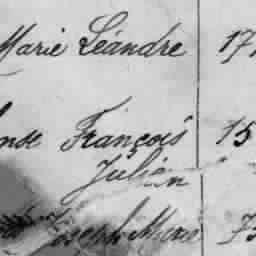 Marie Léandre 17
François 15
Julian
Joseph Marie